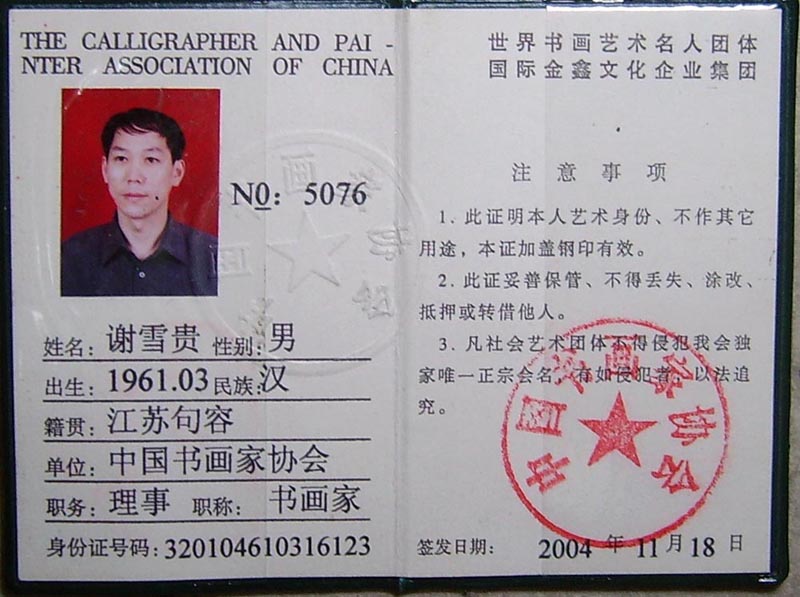 THE CALLIGRAPHER AND PAI -
NTER ASSOCIATION OF CHINA
NO: 5076
姓名: 谢雪贵 性别: 男
出生: 1961.03 民族: 汉
籍贯: 江苏句容
单位: 中国书画家协会
职务: 理事 职称: 书画家
身份证号码: 320104610316123
世界书画艺术名人团体
国际金鑫文化企业集团
注意事项
1. 此证明本人艺术身份、不作其它
用途,本证加盖钢印有效。
2. 此证妥善保管、不得丢失、涂改、
抵押或转借他人。
3. 凡社会艺术团体不得侵犯我会独
家唯一正宗会名,有如侵犯者,以法追
究。
中国书画家协会
签发日期: 2004 年 11 月 18 日